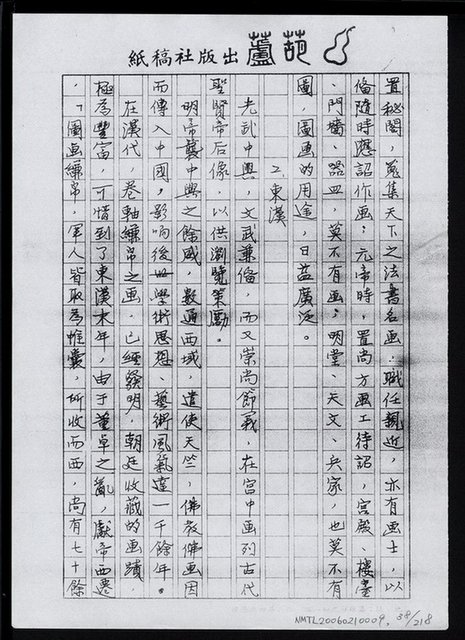 葫蘆出版社稿紙
置秘閣，蒐集天下之法書名画；職任親近，亦有画士，以
備隨時應詔作画；元帝時，置尚方画工待詔，宮殿、樓臺
、門牆、器皿，莫不有画；明堂、天文、兵家，也莫不有
圖，圖画的用途，日益廣泛。
2.東漢
光武中興，文武兼備，而又崇尚節義，在宮中画列古代
聖賢帝后像，以供瀏覽策勵。
明帝襲中興之餘威，數通西域，遣使天竺，佛教佛画因
而傳入中國，影响後世學術思想、藝術風氣達一千餘年。
在漢代，卷軸縑帛之画，已經發明，朝廷收藏的画蹟，
極為豐富，可惜到了東漢末年，由于董卓之亂，獻帝西遷
，「圖画縑帛，軍人皆取為帷囊，所收而西，尚有七十餘
NMTL20060210009, 38/218